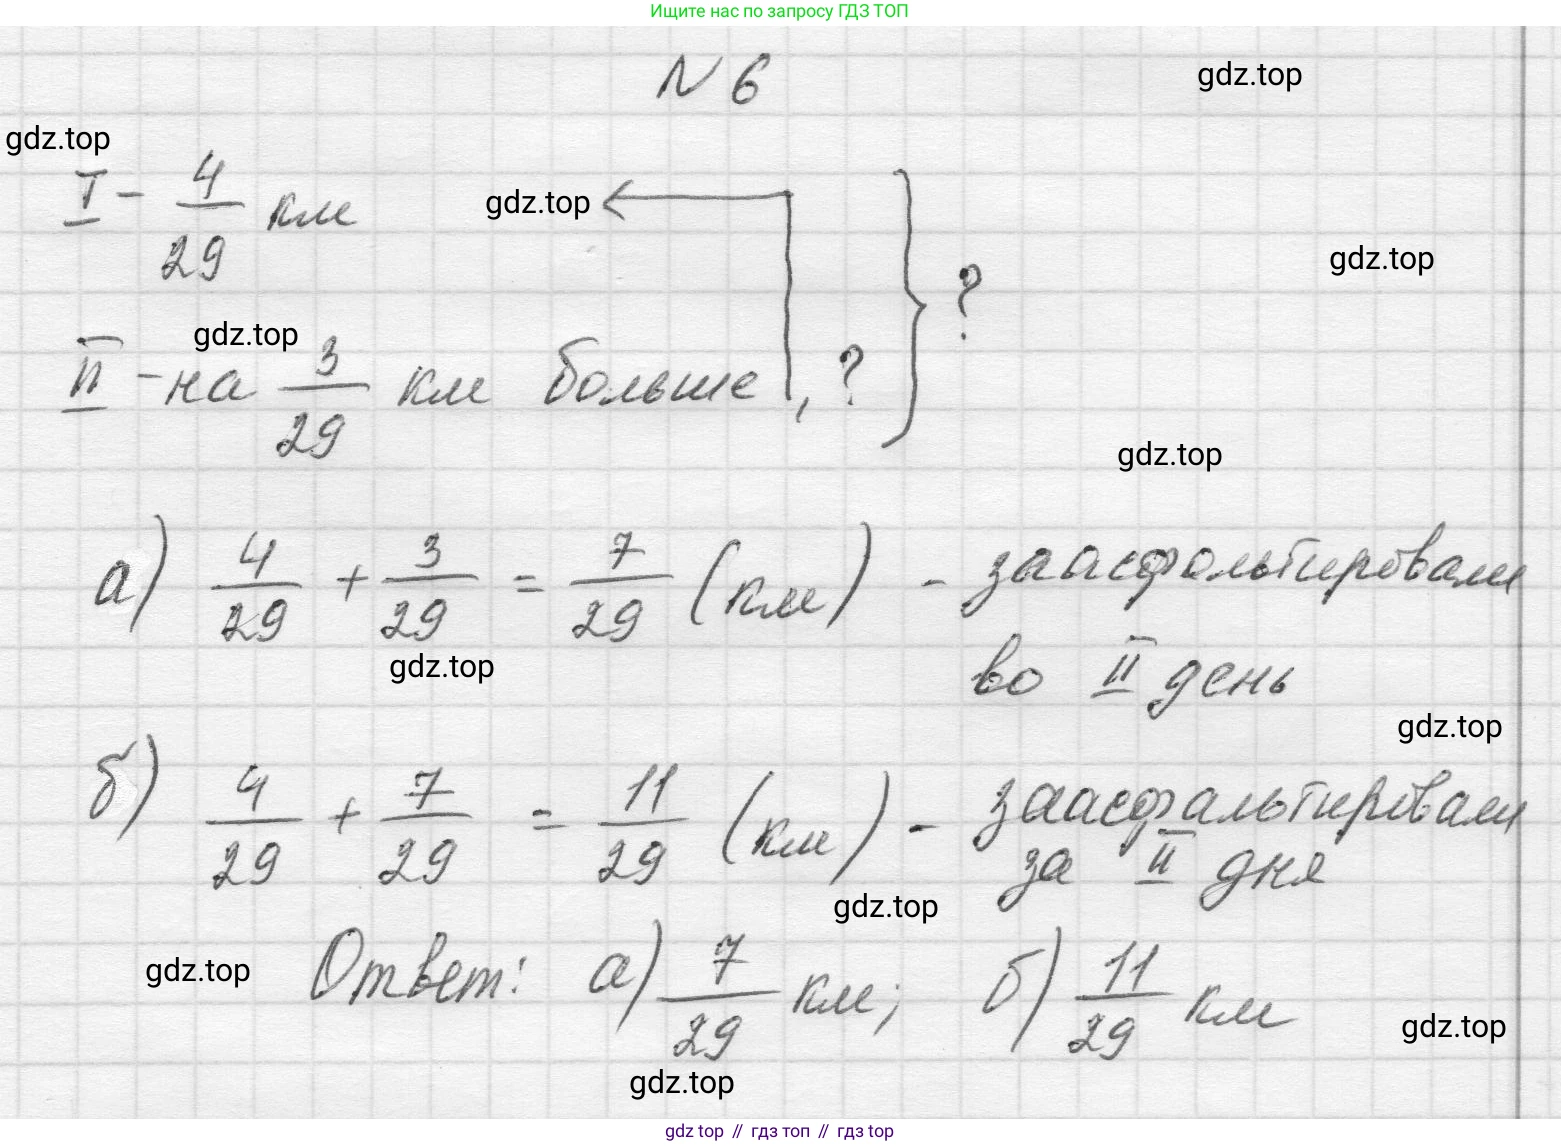 Ищите нас по запросу ГДЗ ТОП
N 6
gdz.top
gdz.top
I - 4/29 км
gdz.top
gdz.top
?
gdz.top
II - на 3/29 км больше, ?
gdz.top
а) 4/29 + 3/29 = 7/29 (км) - заасфольтировали
во II день
gdz.top
gdz.top
б) 4/29 + 7/29 = 11/29 (км) - заасфальтировали
за II дня
gdz.top
gdz.top
Ответ: а) 7/29 км; б) 11/29 км
gdz.top
gdz.top
gdz top // гдз топ // гдз top